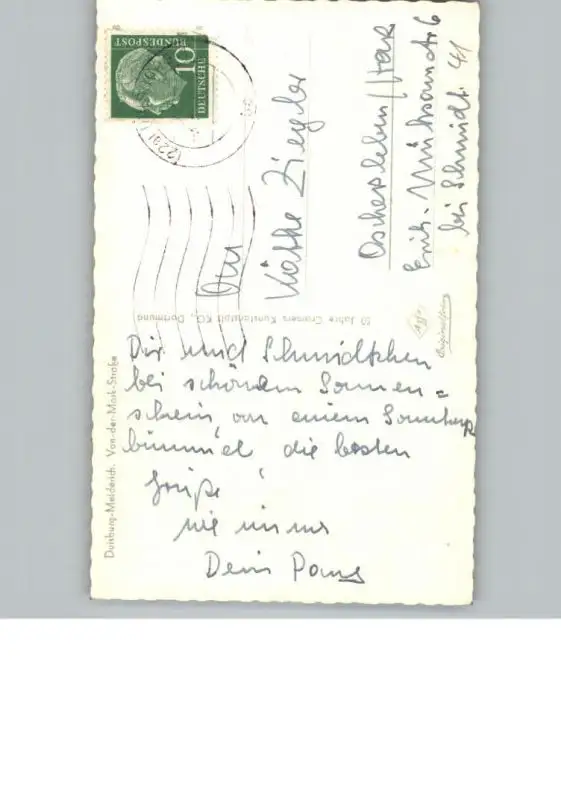 DEUTSCHE
BUNDESPOST
10
(22a)
An
Käthe Ziegler
Oschersleben / Harz
Erich-Mühsamstr 6
bei Schmidt 41
50 Jahre Cramers Kunstanstalt KG., Dortmund
Originalfoto
Duisburg-Meiderich. Von-der-Mark-Straße
Dir und Schmidtchen
bei schönem Sonnen=
schein, von einem Sonntags
bummel die besten
Grüße
wie immer
Dein